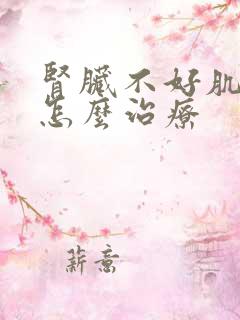 腎臟不好肌
怎麼治療
薪意